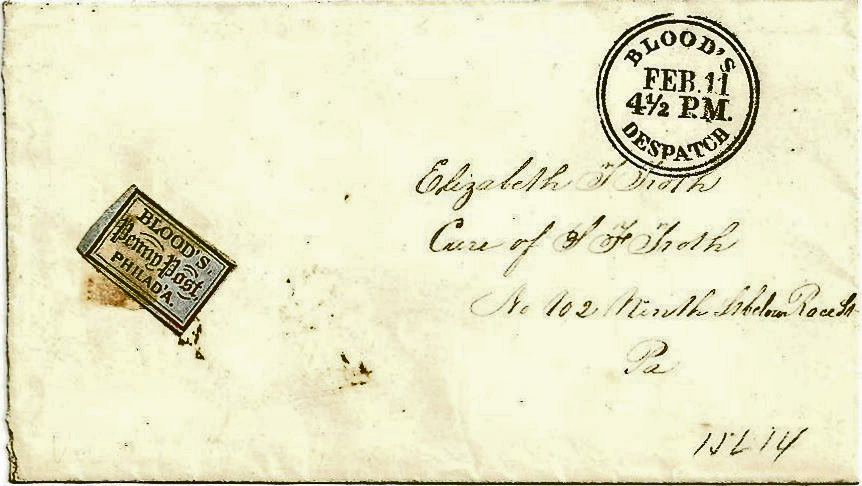 BLOOD'S
FEB. 11
4½ P.M.
DESPATCH
BLOOD'S
Penny Post
PHILAD'A.
Elizabeth F Troth
Care of S F Troth
No 102 Ninth St below Race St
Pa
15L14